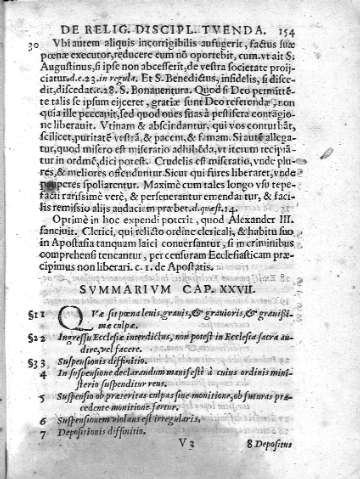 DE RELIG. DISCIPL. TVENDA. 154
30 Vbi autem aliquis incorrigibilis aufugerit, factus suæ
pœnæ executor, reducere eum nō oportebit, cum. vt ait S.
Augustinus, si ipse non abcesserit, de vestra societate proij-
ciatur. d. c. 23. in regula. Et S. Benedictus, infidelis, si disce-
dit, discedat. c. 28. S. Bonauentura. Quod si Deo permittē-
te talis se ipsum eijceret, gratiæ sunt Deo referendæ, non
quia ille peccauit, sed quod oues suas à pestifera contagio-
ne liberauit. Vtinam & abscindantur, qui vos conturbāt,
scilicet, puritatē vestrā, & pacem, & famam. Si autē allega-
tur, quod misero est miseratio adhibēda, vt iterum recipiā-
tur in ordinē, dici potest. Crudelis est miseratio, vnde plu-
res, & meliores offenduntur. Sicut qui fures liberaret, vnde
pauperes spoliarentur. Maximè cum tales longo vsu tepe-
facti rarissimè verè, & perseueranter emendantur, & faci-
lis remissio alijs audaciam præbeat. quæst. 14.
Optimè in hoc expendi poterit, quod Alexander III.
sanciuit. Clerici, qui relicto ordine clericali, & habitu suo
in Apostasia tanquam laici conuersantur, si in criminibus
comprehensi teneantur, per censuram Ecclesiasticam præ-
cipimus non liberari. c. 1. de Apostatis.
SVMMARIVM CAP. XXVII.
§1 1 QVæ sit pœna leuis, grauis, & grauioris, & grauissi-
mæ culpæ.
§2 2 Ingressu Ecclesiæ interdictus, non potest in Ecclesia sacra au-
dire, vel facere.
§3 3 Suspensionis diffinitio.
4 In suspensione declarandum manifestè à cuius ordinis mini-
sterio suspenditur reus.
5 Suspensio ob præteritas culpas sine monitione, ob futuras præ-
cedente monitione fertur.
6 Suspensionem violans est irregularis.
7 Depositionis diffinitio.
V 3 8 Depositus